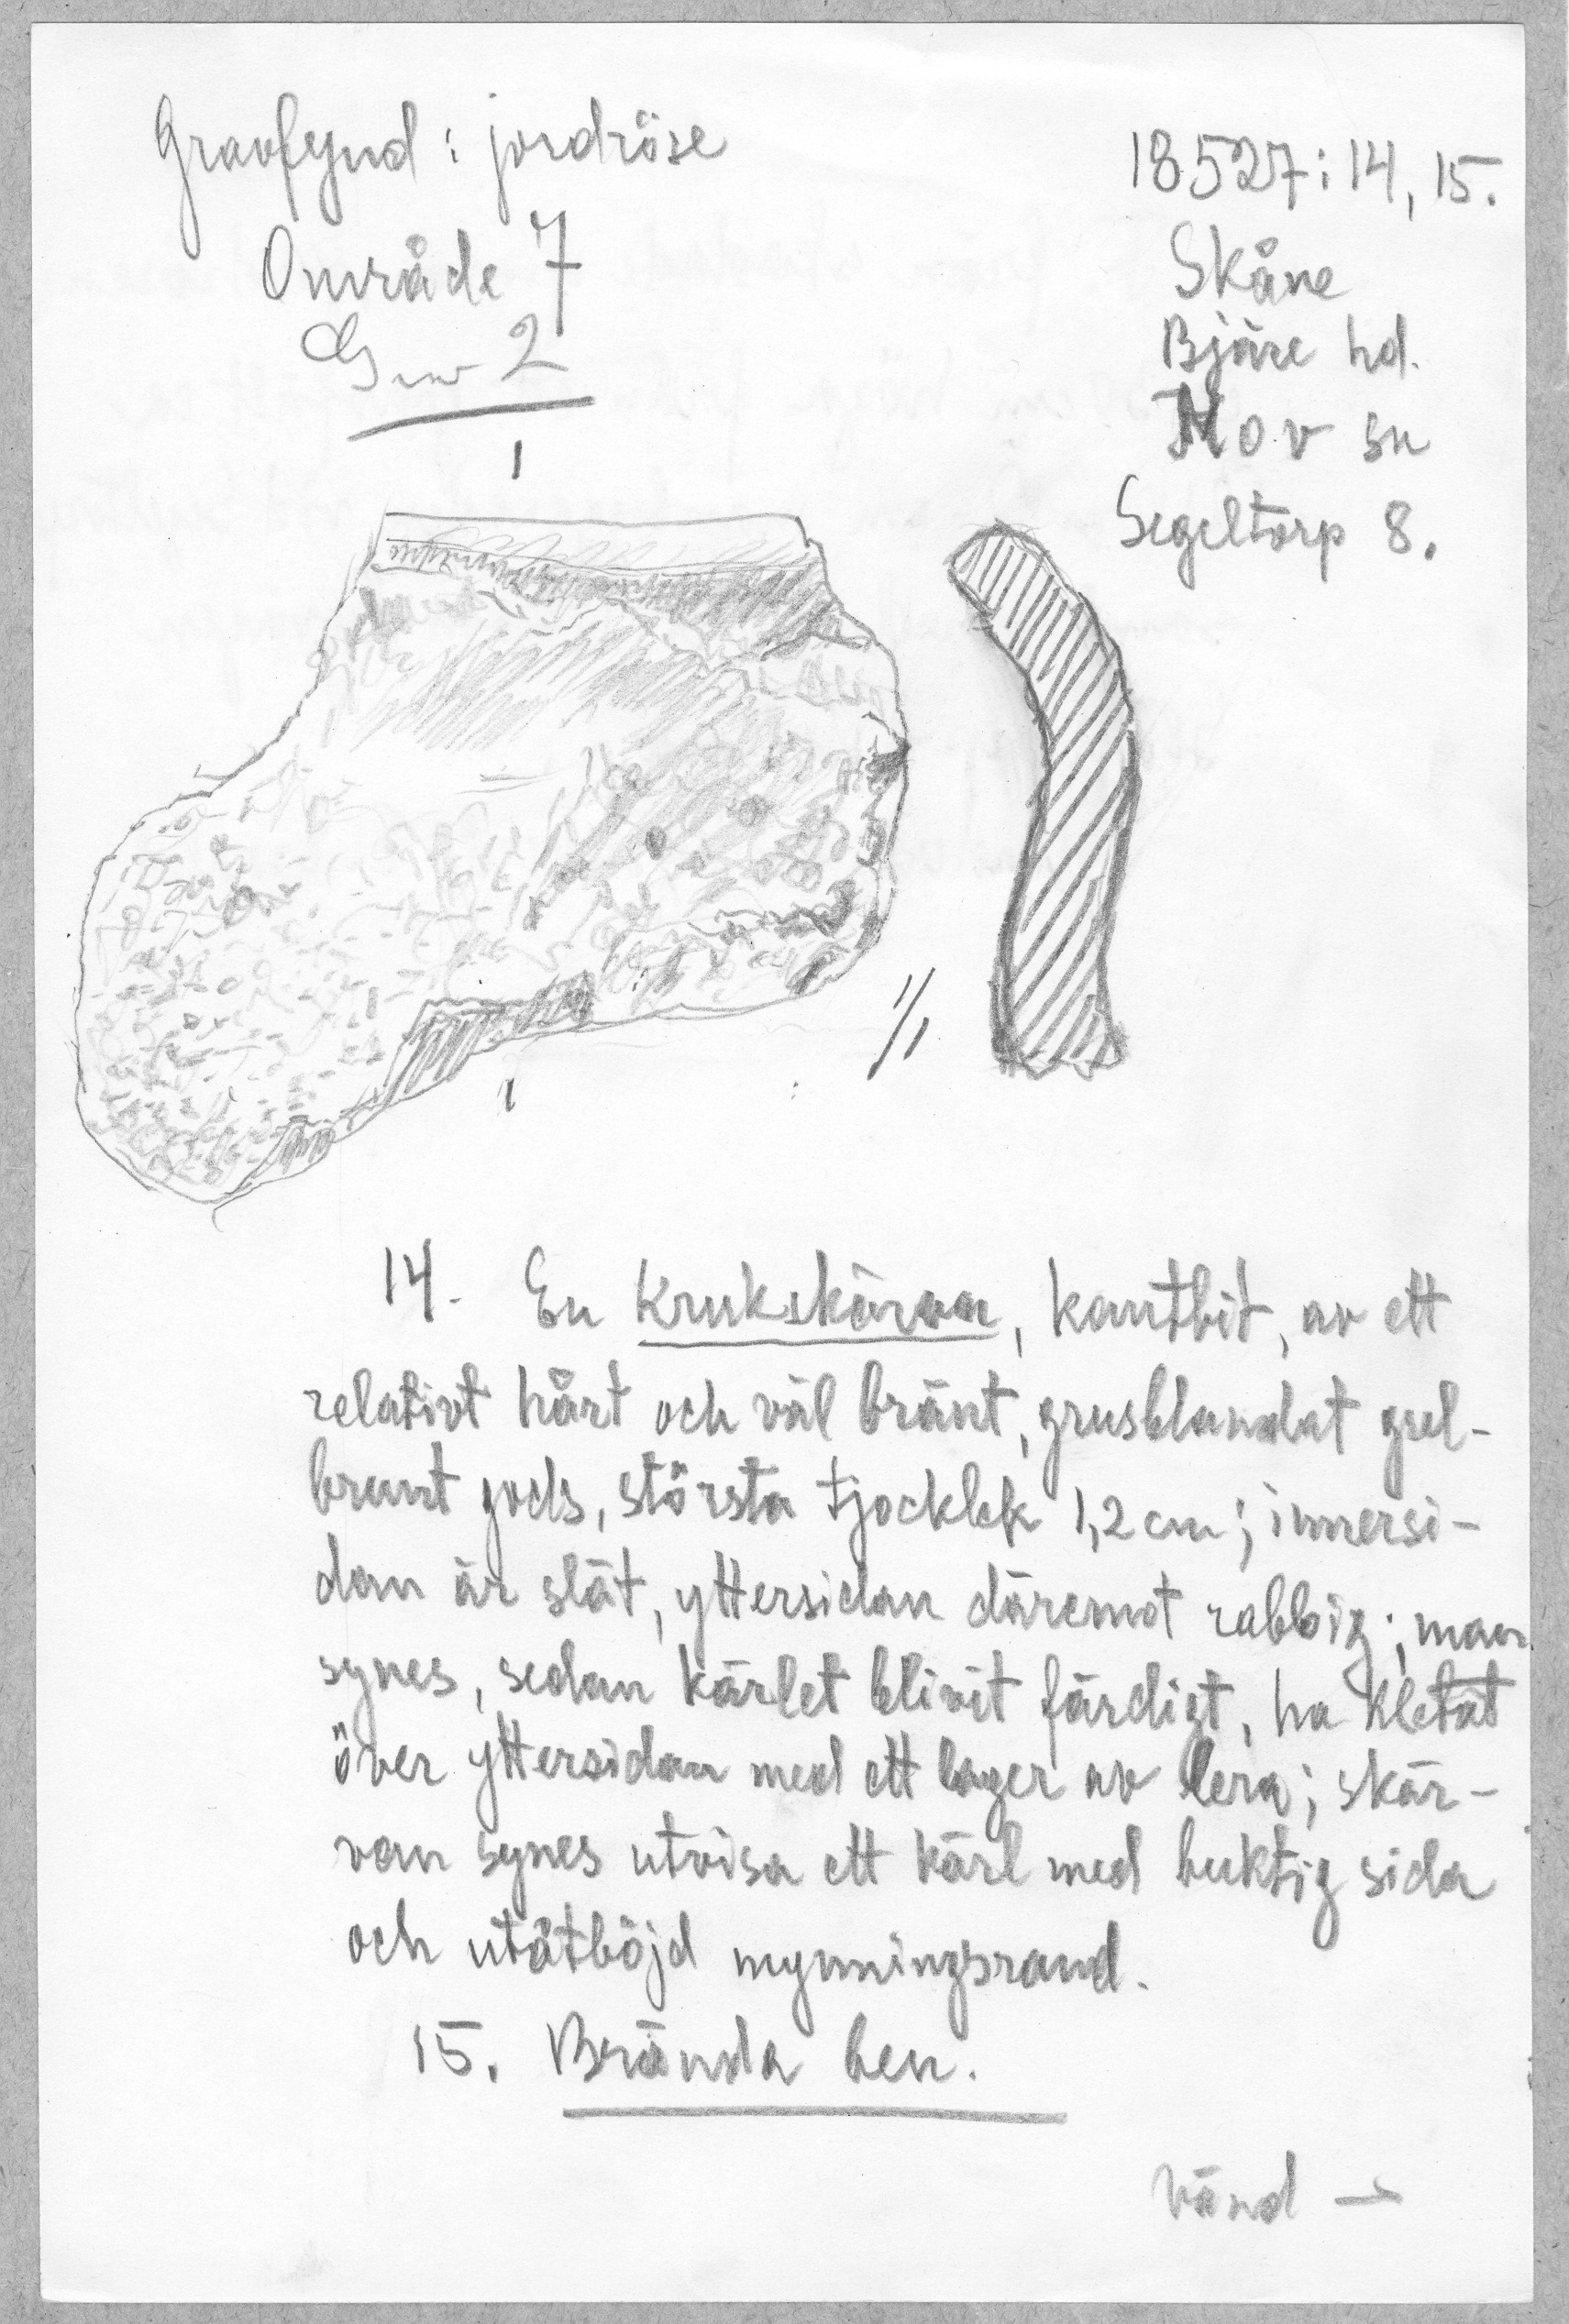 Gravfynd i jordröse
Område 7
Grav 2
18527:14, 15.
Skåne
Bjäre hd.
Hov sn
Segeltorp 8.
1/1
14. En krukskärva, kantbit, av ett
relativt hårt och väl bränt, grusblandat gul-
brunt gods, största tjocklek 1,2 cm; innersi-
dan är slät, yttersidan däremot rabbig; man
synes, sedan kärlet blivit färdigt, ha kletat
över yttersidan med ett lager av lera; skär-
van synes utvisa ett kärl med buktig sida
och utåtböjd mynningsrand.
15. Brända ben.
Vänd →